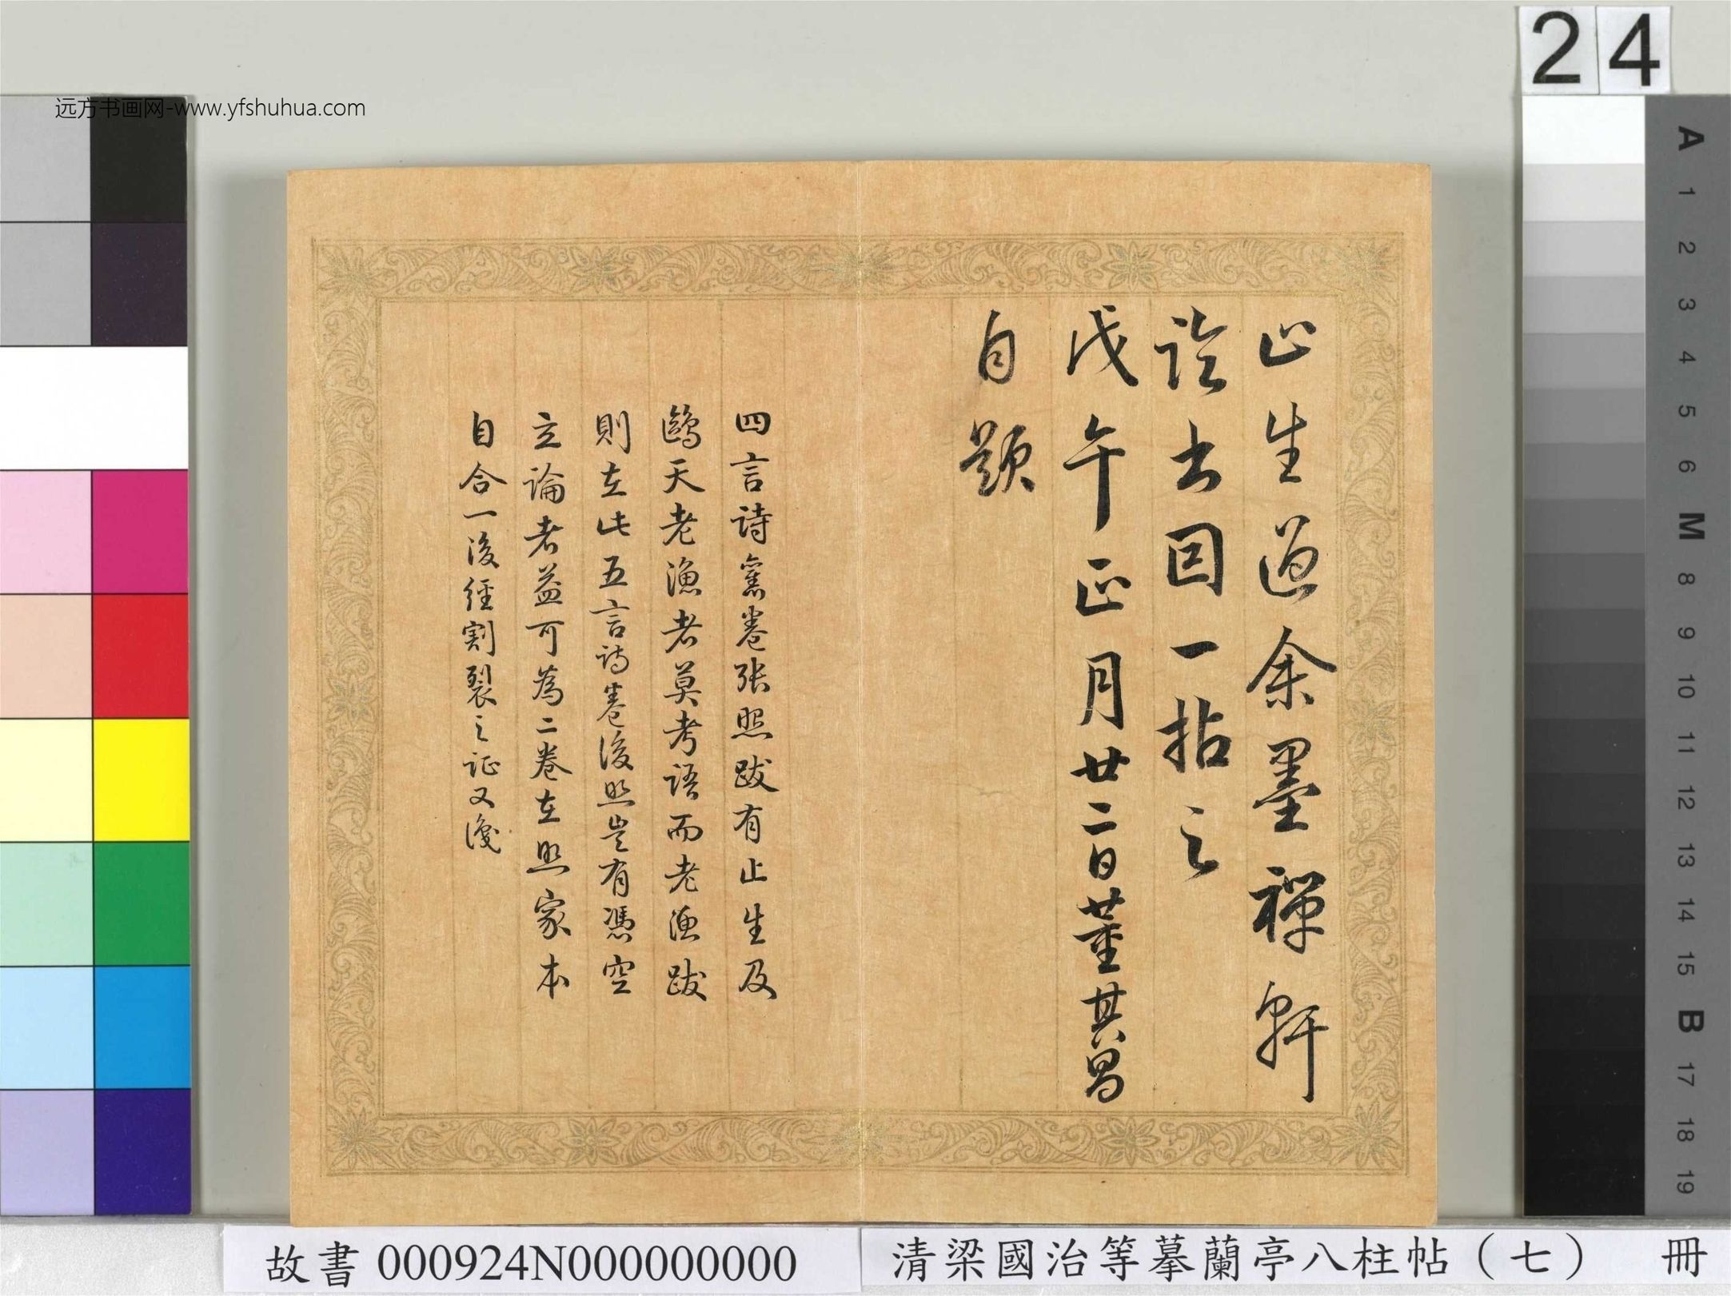 24
远方书画网-www.yfshuhua.com
止生过余墨禅轩
论书因一拈之
戊午正月廿二日董其昌
自题
四言诗旧卷张照跋有止生及
鷗天老渔者莫考语而老渔跋
則在此五言诗卷後照岂有凭空
立論者益可為二卷在照家本
自合一後經割裂之证又識
A
1
2
3
4
5
6
M
8
9
10
11
12
13
14
15
B
17
18
19
故書 000924N000000000
清梁國治等摹蘭亭八柱帖（七） 冊